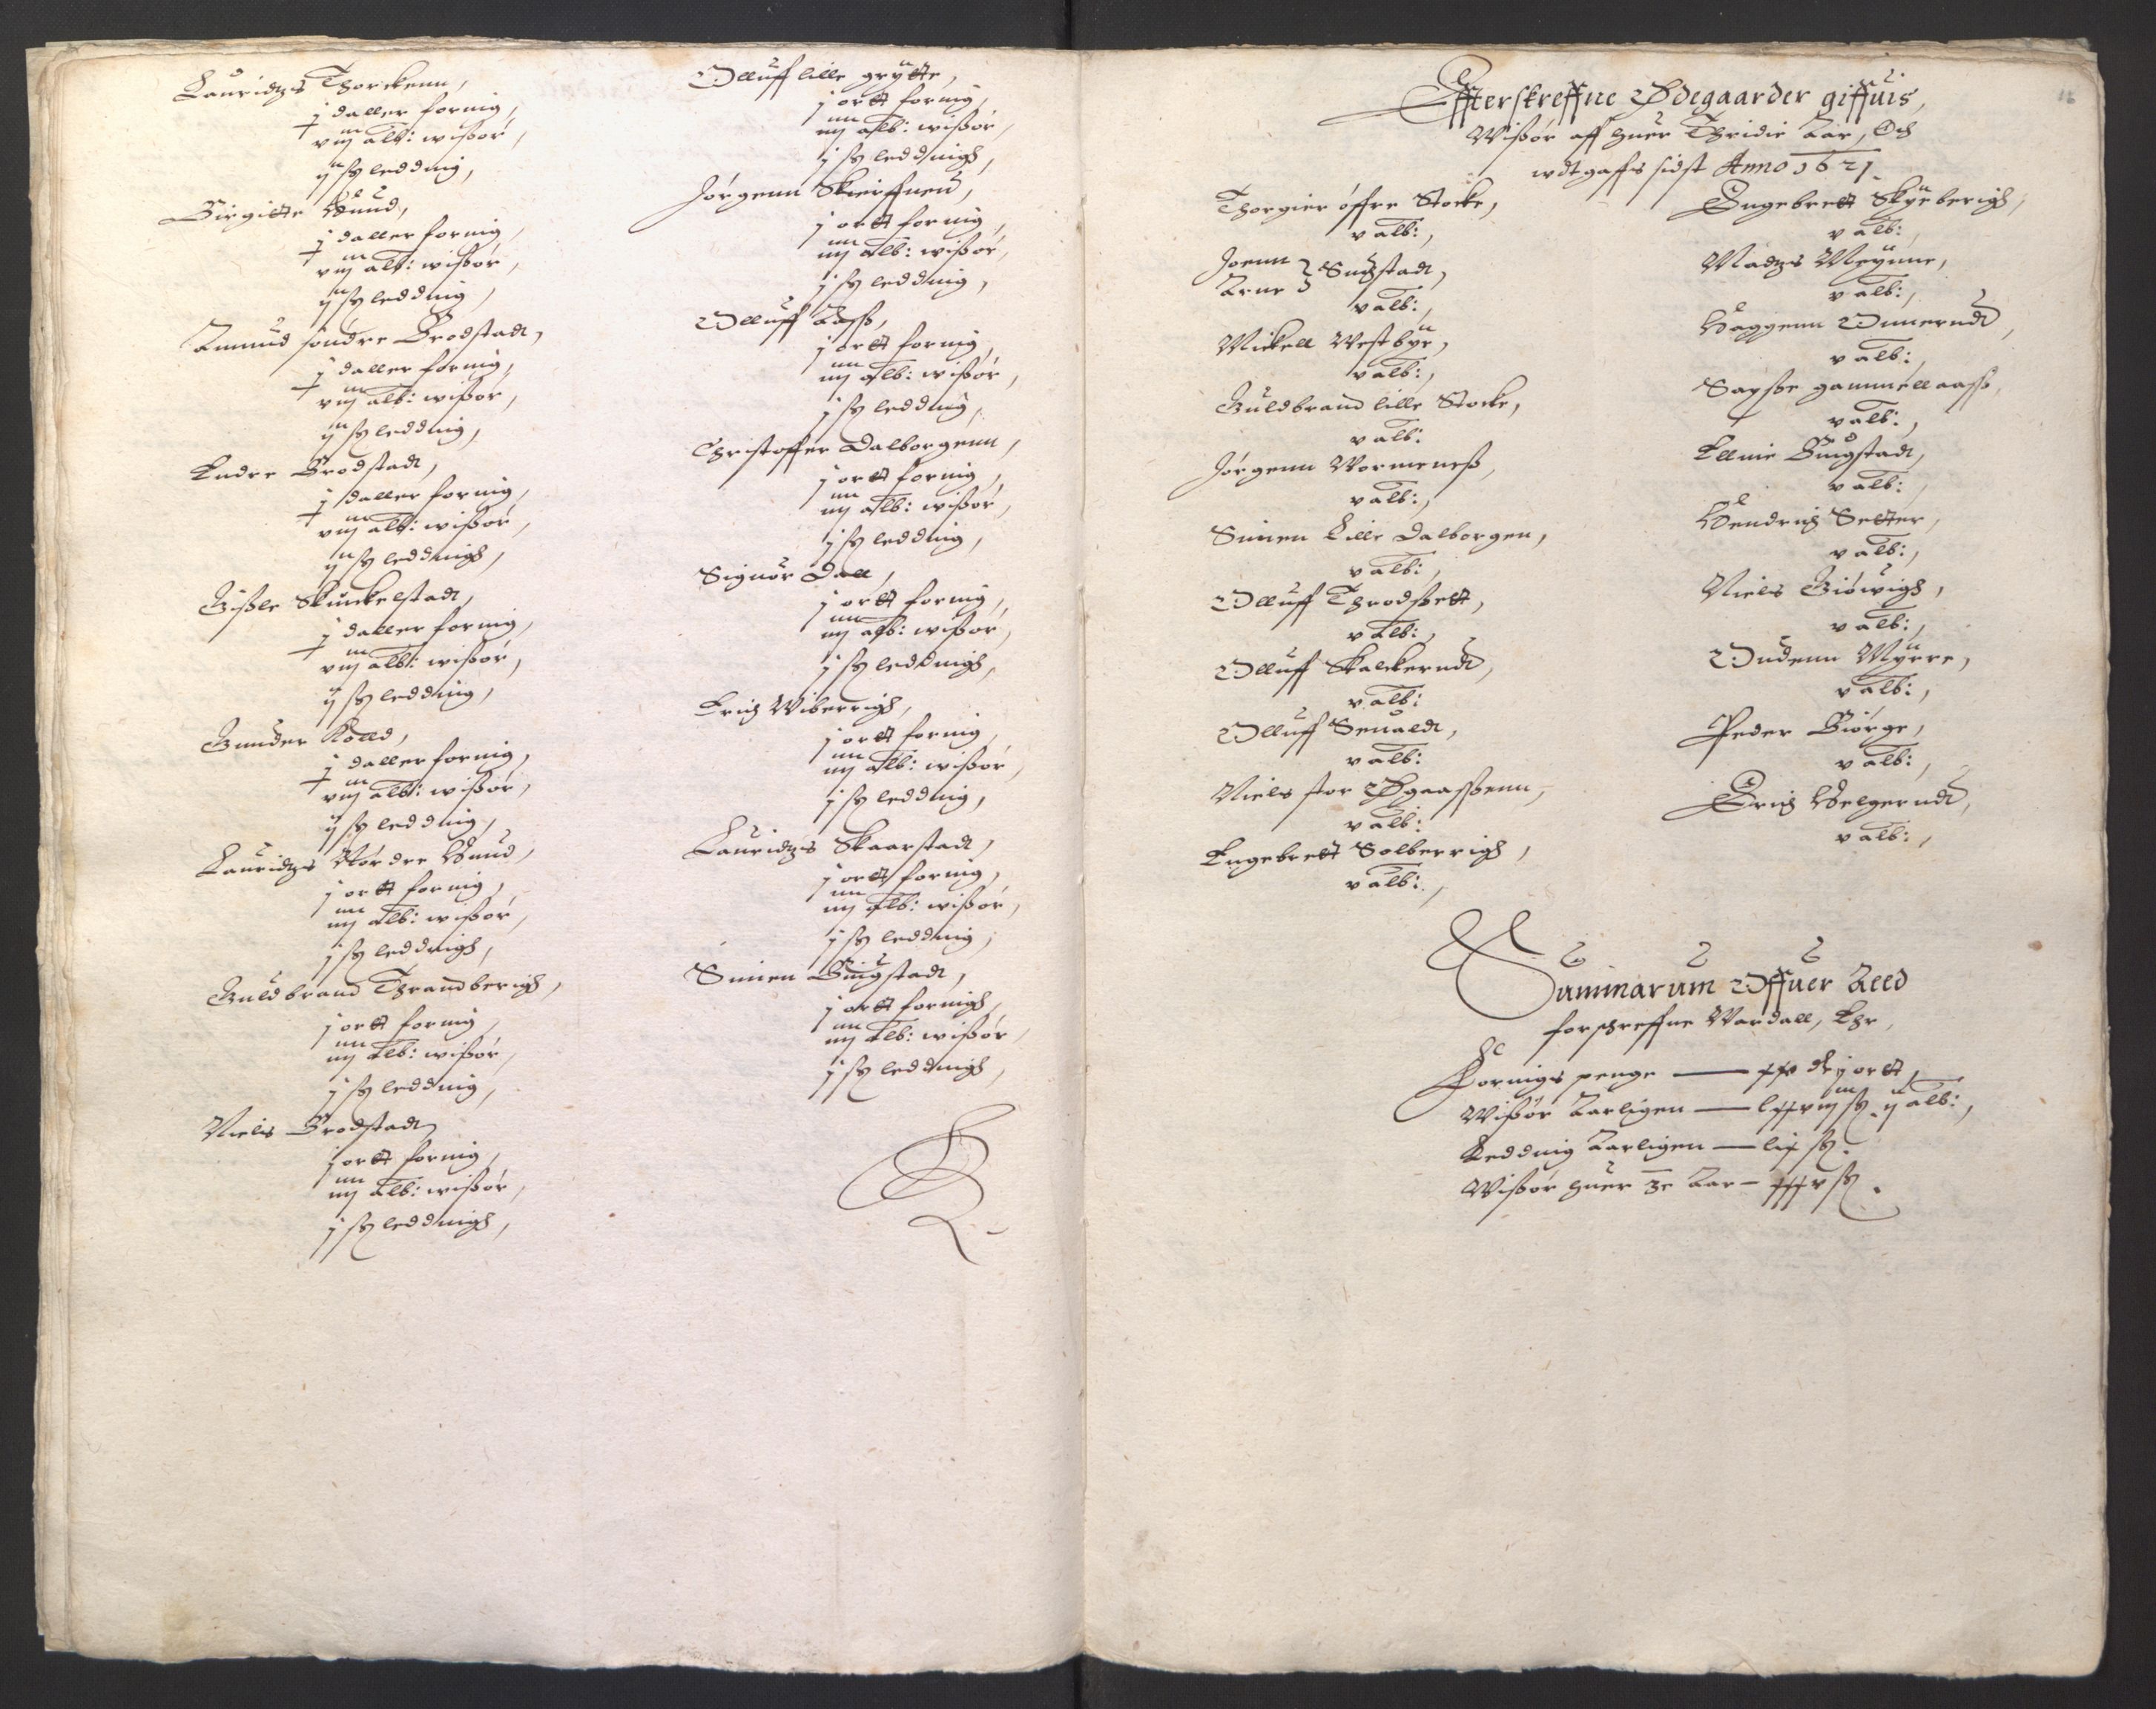 Lauridtzs Thorckenn,
j daller fornig,
viij alb: wißør,
ij sz ledding,
Birgitte Hund,
j daller fornig,
viij alb: wißør,
ij sz ledding,
Amund søndre Brodstadt,
j daller fornig,
viij alb: wißør,
ij sz ledding,
Endre Brodstadt,
j daller fornig,
viij alb: wißør,
ij sz leddingh,
Gißle Skunckelstadt,
j daller fornig,
viij alb: wißør,
ij sz ledding,
Gunder Kolld,
j daller fornig,
viij alb: wißør,
ij sz ledding,
Lauridtzs Nórdre Hund,
j ortt fornig,
iiij alb: wißør,
j sz leddingh,
Guldbrand Thrandberigh,
j ortt fornig,
iiij alb: wißør,
j sz ledding,
Niels Brodstadt,
j ortt fornig,
iiij alb: wißør,
j sz leddingh,
Olluff lille grÿtte,
j ortt fornig,
iiij alb: wißør,
j sz leddingh,
Jórgenn Skieiffneu,
j ortt fornig,
iiij alb: wißør,
j sz ledding,
Olluff Aaß,
j ortt fornig,
iiij alb: wißør,
j sz ledding,
Christoffer Dalborgenn,
j ortt fornig,
iiij alb: wißør,
j sz ledding,
Signúr Dall,
j ortt fornig,
iiij alb: wißør,
j sz leddingh,
Erich Wiberrigh,
j ortt fornig,
iiij alb: wißør,
j sz ledding,
Lauridtzs Skaarstadt,
j ortt fornig,
iiij alb: wißør,
j sz ledding,
Simen Bingstadt,
j ortt fornigh,
iiij alb: wißør,
j sz leddingh,
16
Effterskreffne Ødegaarder giffuis,
Wißór aff huer Thridie Aar, Och
wdtgaffs sidst Anno 1621.
Thorgier óffre Stocke,
v alb:,
Joenn
Arne } Sugstadt,
v alb:,
Mickell Westbÿe,
v alb:,
Guldbrand lille Stocke,
v alb:
Jórgenn Wormeneß,
v alb:,
Simen Lille Dalborgen,
v alb:,
Olluff Throdßett,
v alb:,
Olluff Skalckerudt,
v alb:
Olluff Seualdt,
v alb:
Niels stor Øgaaßenn,
v alb:
Engebrett Solberrigh,
v alb:,
Engebrett Skÿeberigh,
v alb:,
Madtzs Mÿnne,
v alb:,
Haggenn Onnerudt,
v alb:,
Sayße gammellaaß,
v alb:,
Elline Bingstadt,
v alb:,
Hendrich Setter,
v alb:,
Niels Gióruigh,
v alb:,
Oudenn Mÿrre,
v alb:,
Peder Biórge,
v alb:,
Erich Helgerudt,
v alb:,
Summarum Offuer Aeld
forschreffne Wardall, Ehr,
Fornigs penge — xxv dr j ortt,
Wißór Aarligen — lxxviij sz. ij alb:,
Ledding Aarligen — lix sz.
Wißór huer 3e Aar — xxxv sz.